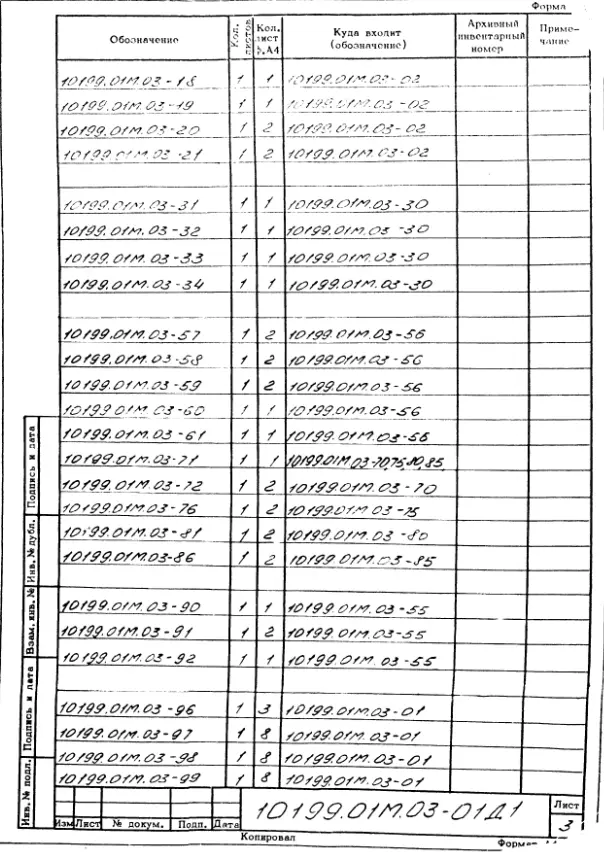 Форма
Обозначение Кол. листов Кол. лист ф.А4 Куда входит (обозначение) Архивный инвентарный номер Приме-чание
10199.01М.03-18 1 1 10199.01М.03-02
10199.01М.03-19 1 1 10199.01М.03-02
10199.01М.03-20 1 2 10199.01М.03-02
10199.01М.03-21 1 2 10199.01М.03-02
10199.01М.03-31 1 1 10199.01М.03-30
10199.01М.03-32 1 1 10199.01М.03-30
10199.01М.03-33 1 1 10199.01М.03-30
10199.01М.03-34 1 1 10199.01М.03-30
10199.01М.03-57 1 2 10199.01М.03-56
10199.01М.03-58 1 2 10199.01М.03-56
10199.01М.03-59 1 2 10199.01М.03-56
10199.01М.03-60 1 1 10199.01М.03-56
10199.01М.03-61 1 1 10199.01М.03-56
10199.01М.03-71 1 1 10199.01М.03-70,75,80,85
10199.01М.03-72 1 2 10199.01М.03-70
10199.01М.03-76 1 2 10199.01М.03-75
10199.01М.03-81 1 2 10199.01М.03-80
10199.01М.03-86 1 2 10199.01М.03-85
10199.01М.03-90 1 1 10199.01М.03-55
10199.01М.03-91 1 2 10199.01М.03-55
10199.01М.03-92 1 1 10199.01М.03-55
10199.01М.03-96 1 3 10199.01М.03-01
10199.01М.03-97 1 8 10199.01М.03-01
10199.01М.03-98 1 8 10199.01М.03-01
10199.01М.03-99 1 8 10199.01М.03-01
Подпись и дата
Инв.№дубл.
Взам. инв.№
Подпись и дата
Инв.№ подл.
10199.01М.03-01Д1
Лист
3
Изм Лист № докум. Подп. Дата
Копировал